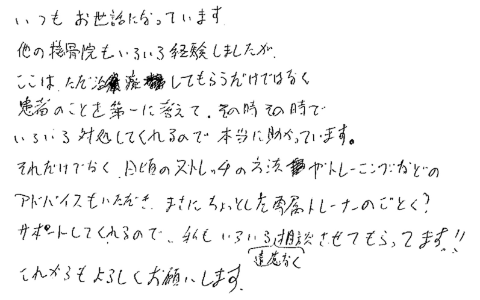 いつもお世話になっています
他の接骨院もいろいろ経験しましたが、
ここは、ただ治療してもらうだけではなく
患者のことを第一に考えて、その時その時で
いろいろ対処してくれるので本当に助かっています。
それだけでなく、日頃のストレッチの方法やトレーニングなどの
アドバイスもいただき、まさにちょっとした専属トレーナーのごとく?
サポートしてくれるので、私もいろいろ相談させてもらってます!!
遠慮なく
これからもよろしくお願いします。